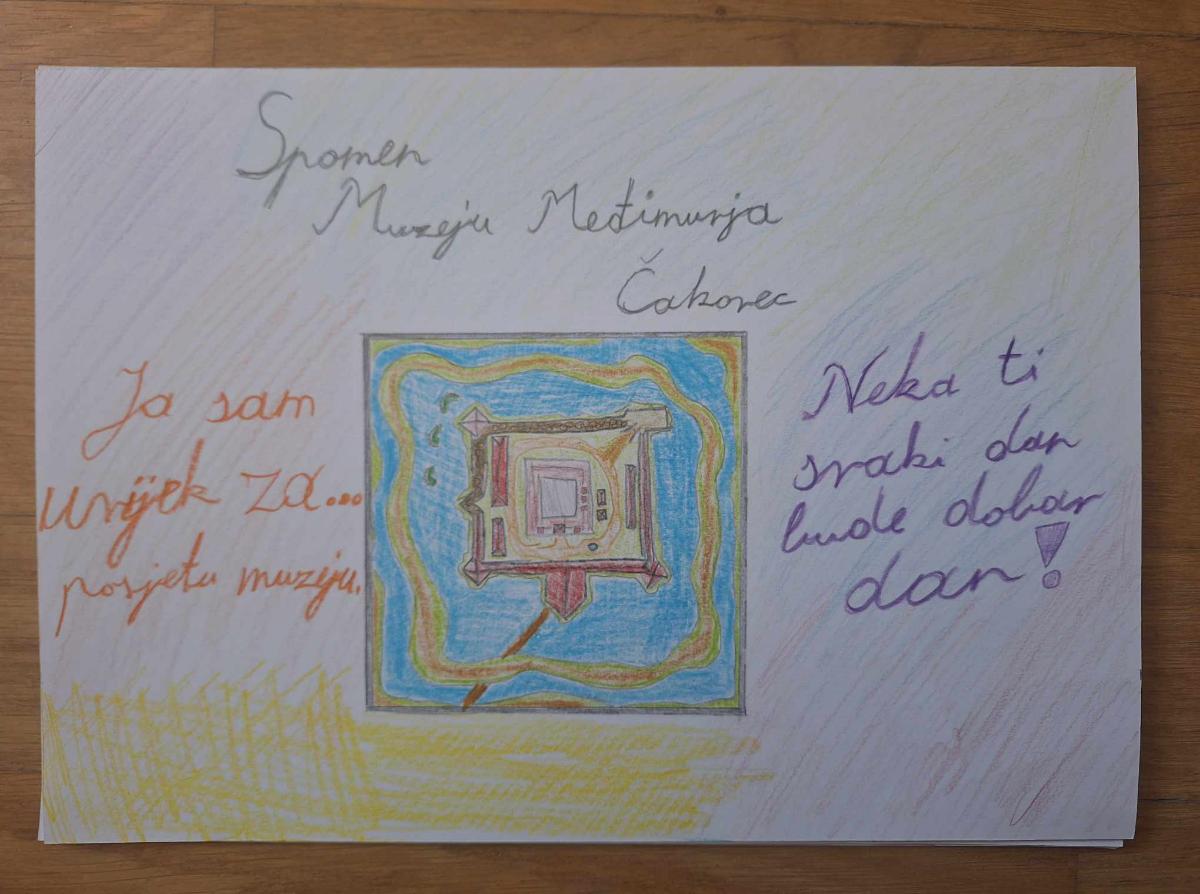 Spomen
Muzeju Međimurja
Čakovec
Ja sam
uvijek ZA...
posjetu muzeju.
Neka ti
svaki dan
bude dobar
dan!